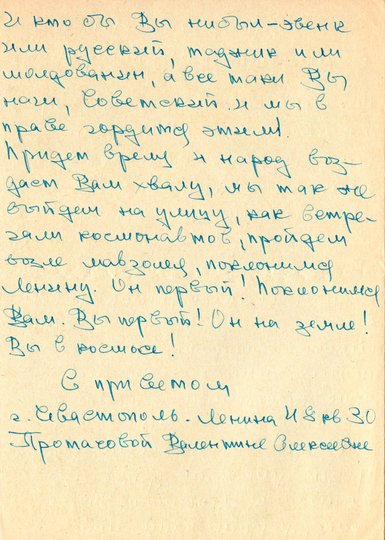 И кто бы Вы нибыл - эвенк
или русский, таджик или
молдованин, а все таки Вы
наш, Советский. и мы в
праве гордится этим!
Придет время и народ воз-
даст Вам хвалу, мы так же
выйдем на улицу, как встре-
чали космонавтов, пройдем
возле мавзолея, поклонимся
Ленину. Он первый! Поклонимся
Вам. Вы первый! Он на земле!
Вы в космосе!
С приветом
г. Севастополь. Ленина 48 кв 30
Валентине Алексевне